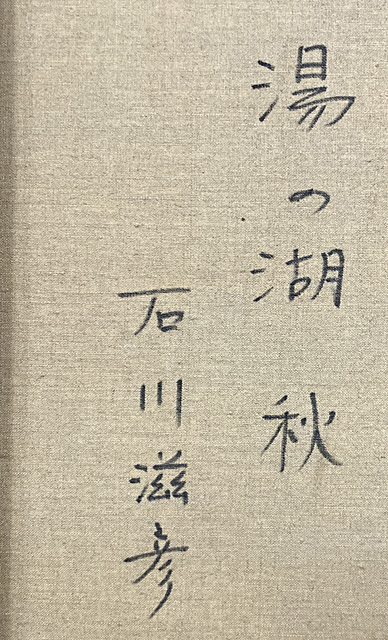 湯の湖 秋
石川滋彦